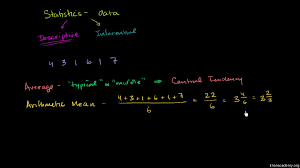 Statistics - data
Descriptive Inferential
4 3 1 6 1 7
Average - "typical" "middle" ⇒ Central Tendency
Arithmetic Mean - (4+3+1+6+1+7)/6 = 22/6 = 3 4/6 = 3 2/3
khanacademy.org